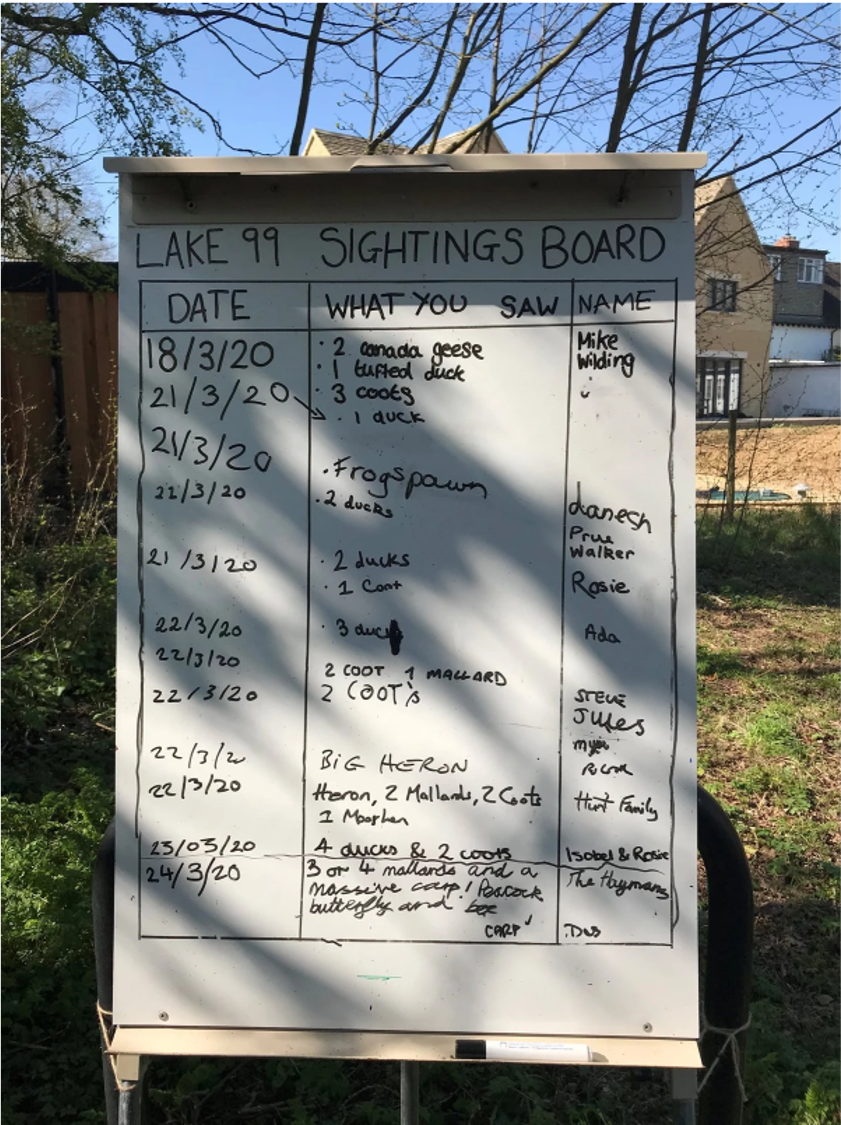 LAKE 99 SIGHTINGS BOARD
DATE WHAT YOU SAW NAME
18/3/20 · 2 canada geese Mike
· 1 tufted duck Wilding
21/3/20 · 3 coots "
· 1 duck
21/3/20 · Frogspawn
22/3/20 · 2 ducks danesh
Prue
Walker
21/3/20 · 2 ducks
· 1 Coot Rosie
22/3/20 · 3 duck Ada
22/3/20 2 COOT 1 MALLARD
22/3/20 2 COOT's STEVE
Jules
22/3/20 BIG HERON
22/3/20 Heron, 2 Mallards, 2 Coots Hunt Family
1 Moorhen
23/03/20 4 ducks & 2 coots Isobel & Rosie
24/3/20 3 or 4 mallards and a The Haymans
massive carp! Peacock
butterfly and bee
CARP